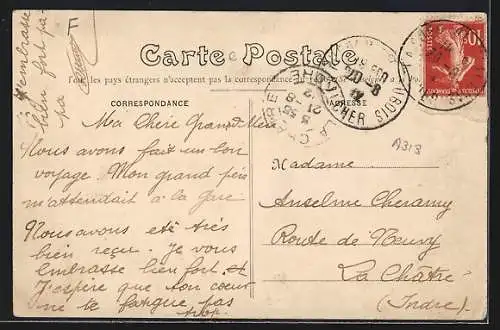 F
J'embrasse
bien fort pa-
pa
Carte Postale
Tous les pays étrangers n'acceptent pas la correspondance au
CORRESPONDANCE
ADRESSE
A313
10c
POSTES
Ma Chère Grand-Mère
Nous avons fait un bon
voyage. Mon grand père
m'attendait à la gare
Nous avons été très
bien reçu. Je vous
embrasse bien fort et
J'espère que ton cœur
ne te fatigue pas
trop.
Madame
Anselme Cheramy
Route de Neuvy
La Châtre
(Indre)